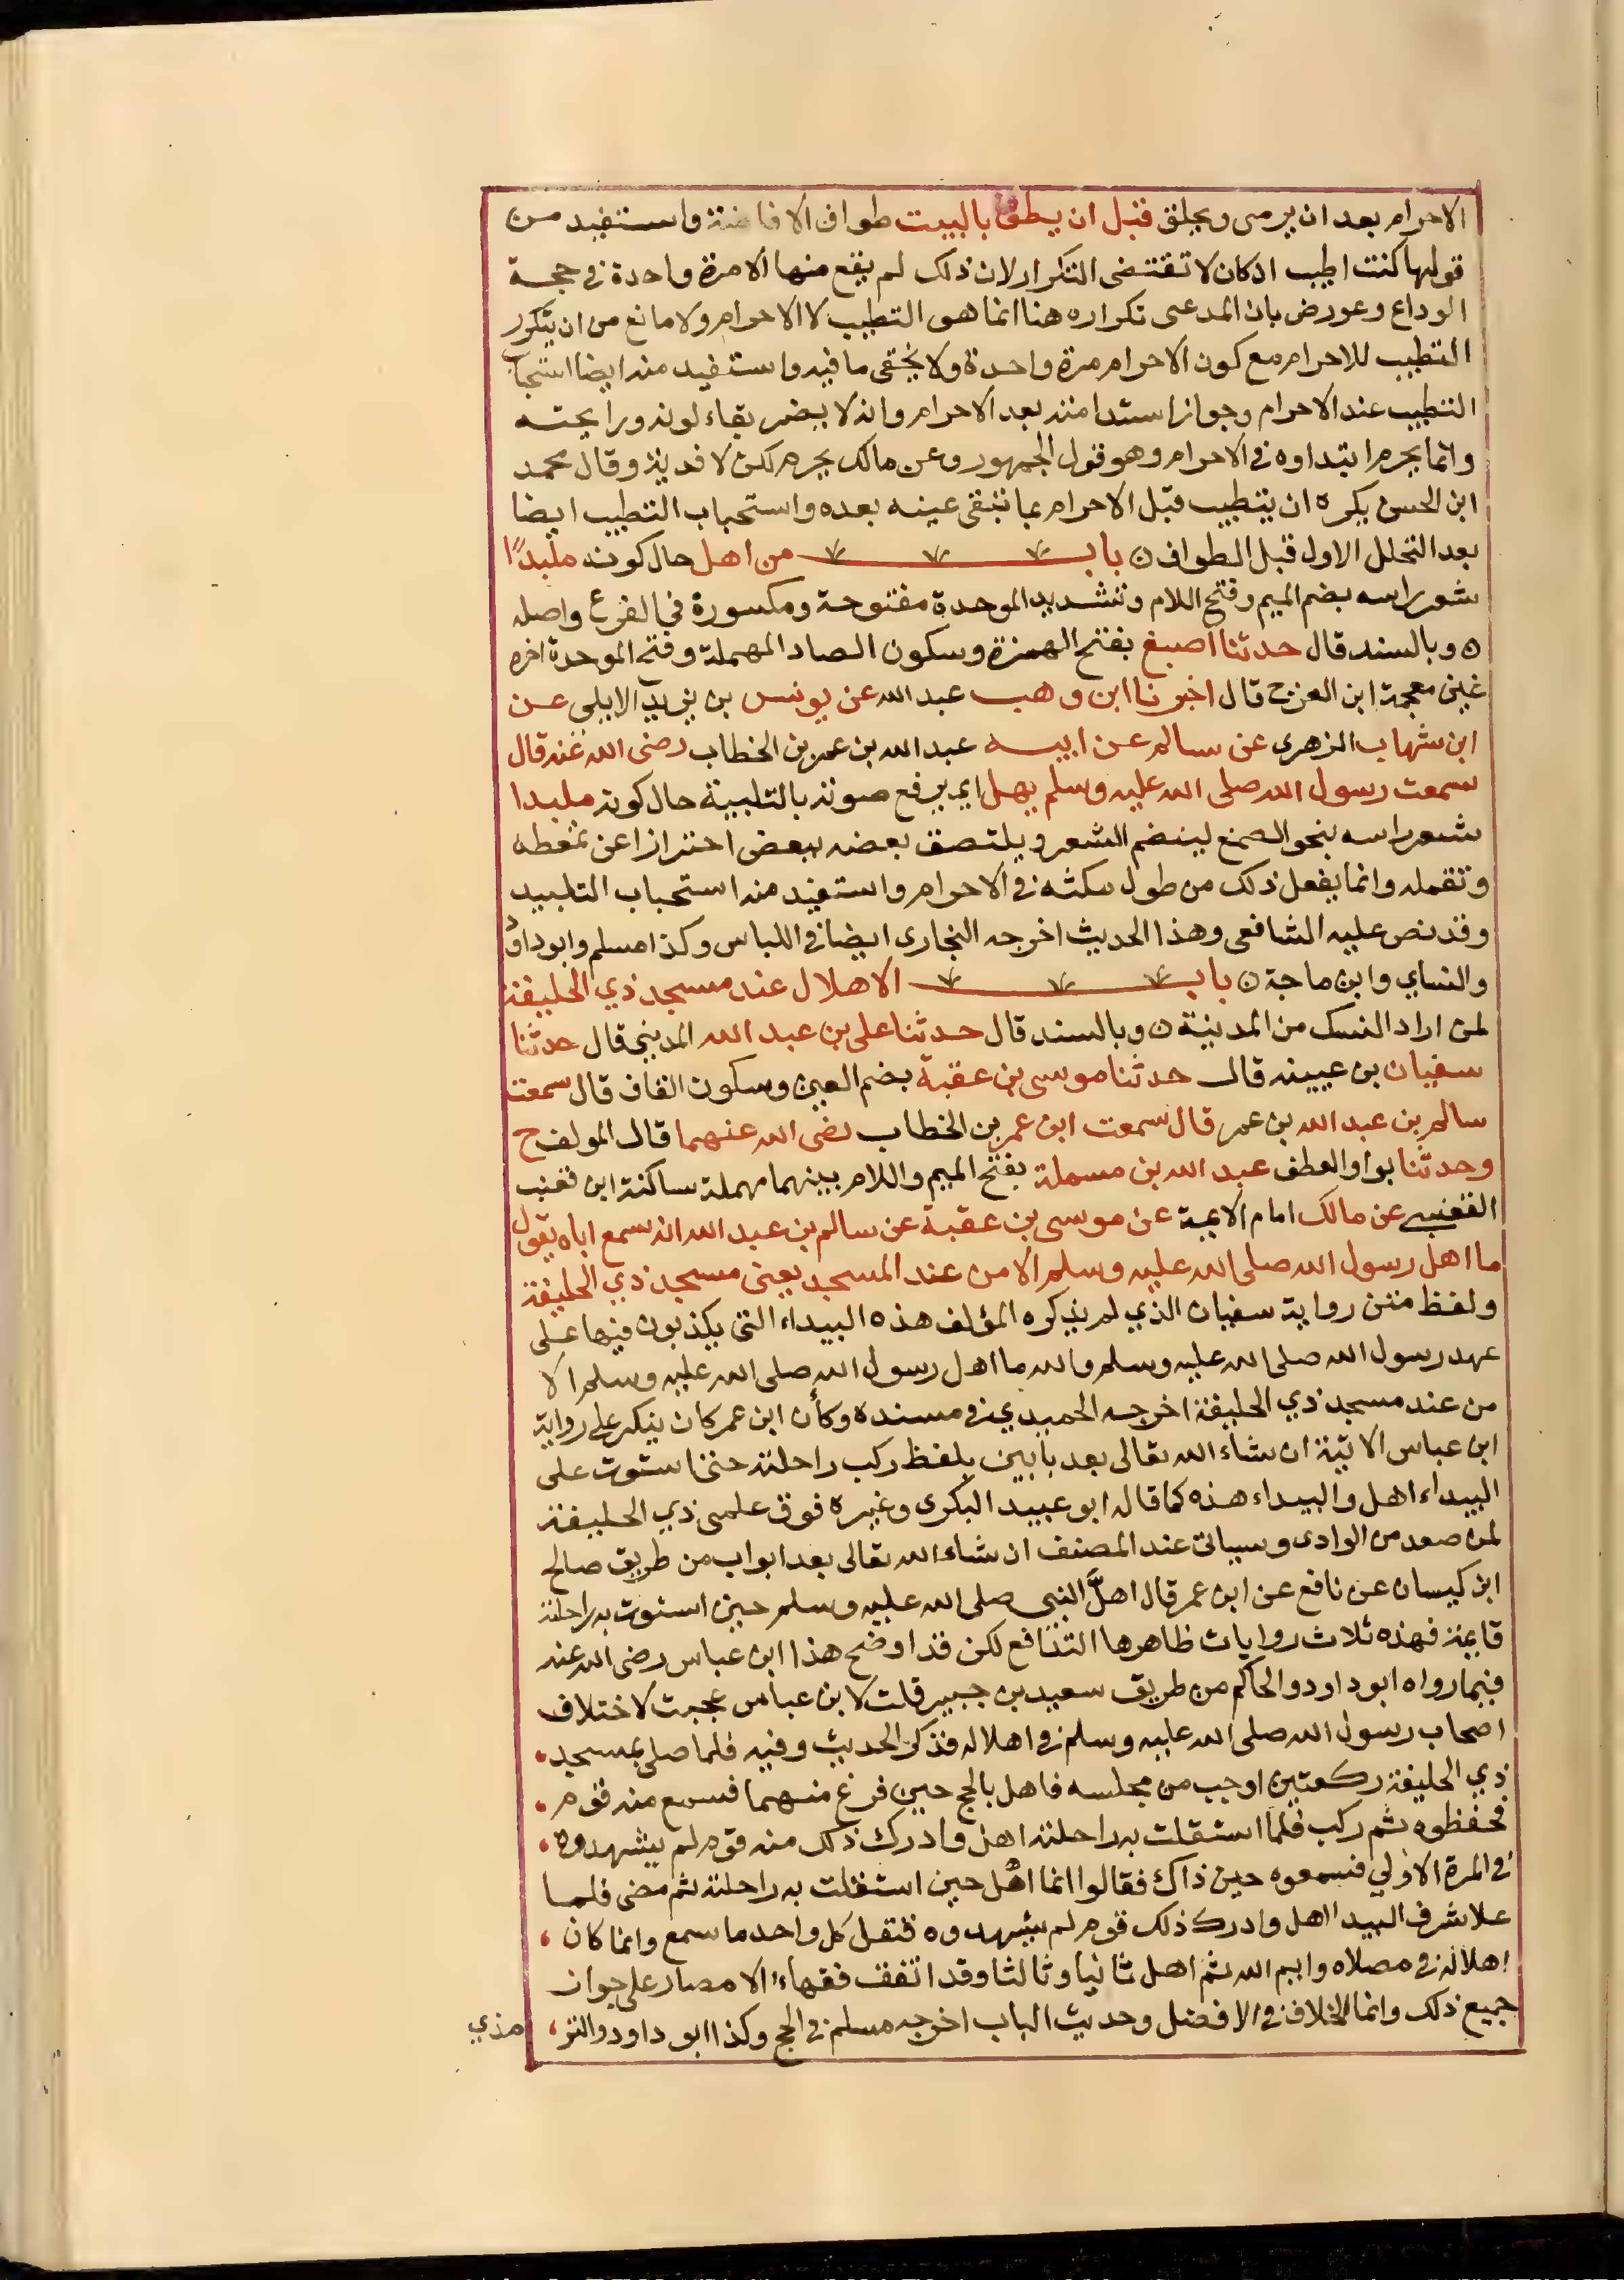 الاحرام بعد ان يرمى ويحلق قبل ان يطوف بالبيت طواف الافاضة واستفيد من
قولها كنت اطيب ان كان لا تقتضى التكرار لان ذلك لم يقع منها الا مرة واحدة في حجة
الوداع وعورض بان المدعى تكراره هنا انما هو التطيب لا الاحرام ولا مانع من ان يتكرر
التطيب للاحرام مع كون الاحرام مرة واحدة ولا يخفى ما فيه واستفيد منه ايضا استحباب
التطيب عند الاحرام وجواز استدامته بعد الاحرام وانه لا يضر بقاء لونه ورايحته
وانما يحرم ابتداوه في الاحرام وهو قول الجمهور وعن مالك يحرم لكن لا فدية وقال محمد
ابن الحسن يكره ان يتطيب قبل الاحرام بما تبقى عينه بعده واستحباب التطيب ايضا
بعد التحلل الاول قبل الطواف ن باب من اهل حال كونه ملبدًا
شعر راسه بضم الميم وفتح اللام وتشديد الموحدة مفتوحة ومكسورة في الفرع واصله
ن وبالسند قال حدثنا اصبغ بفتح الهمزة وسكون الصاد المهملة وفتح الموحدة اخره
غين معجمة ابن الفرج قال اخبرنا ابن وهب عبد الله عن يونس بن يزيد الايلى عن
ابن شهاب الزهرى عن سالم عن ابيه عبد الله بن عمر بن الخطاب رضى الله عنه قال
سمعت رسول الله صلى الله عليه وسلم يهل اى يرفع صوته بالتلبية حال كونه ملبدا
شعر راسه بنحو الصمغ لينضم الشعر ويلتصق بعضه ببعض احترازا عن تمعطه
وتقمله وانما يفعل ذلك من طول مكثه في الاحرام واستفيد منه استحباب التلبيد
وقد نص عليه الشافعى وهذا الحديث اخرجه البخارى ايضا في اللباس وكذا مسلم وابوداود
والنساي وابن ماجة ن باب الاهلال عند مسجد ذي الحليفة
لمن اراد النسك من المدينة ن وبالسند قال حدثنا على بن عبد الله المدينى قال حدثنا
سفيان بن عيينه قال حدثنا موسى بن عقبة بضم العين وسكون القاف قال سمعت
سالم بن عبد الله بن عمر قال سمعت ابن عمر بن الخطاب رضى الله عنهما قال المولف ح
وحدثنا بواو العطف عبد الله بن مسلمة بفتح الميم واللام بينهما مهملة ساكنة ابن قعنب
القعنبي عن مالك امام الايمة عن موسى بن عقبة عن سالم بن عبد الله انه سمع اباه يقول
ما اهل رسول الله صلى الله عليه وسلم الا من عند المسجد يعنى مسجد ذي الحليفة
ولفظ متن رواية سفيان الذي لم يذكره المؤلف هذه البيداء التى يكذبون فيها على
عهد رسول الله صلى الله عليه وسلم والله ما اهل رسول الله صلى الله عليه وسلم الا
من عند مسجد ذي الحليفة اخرجه الحميدي في مسنده وكأن ابن عمر كان ينكر على رواية
ابن عباس الاتية ان شاء الله تعالى بعد بابين بلفظ ركب راحلته حتى استوت على
البيداء اهل والبيداء هذه كما قاله ابو عبيد البكرى وغيره فوق علمى ذي الحليفة
لمن صعد من الوادى وسياتى عند المصنف ان شاء الله تعالى بعد ابواب من طريق صالح
ابن كيسان عن نافع عن ابن عمر قال اهلَّ النبى صلى الله عليه وسلم حين استوت به راحلته
قايمة فهذه ثلاث روايات ظاهرها التدافع لكن قد اوضح هذا ابن عباس رضى الله عنه
فيما رواه ابوداود والحاكم من طريق سعيد بن جبير قلت لابن عباس عجبت لاختلاف
اصحاب رسول الله صلى الله عليه وسلم في اهلاله فذكر الحديث وفيه فلما صلى بمسجد
ذي الحليفة ركعتين اوجب من مجلسه فاهل بالحج حين فرغ منهما فسمع منه قوم
فحفظوه ثم ركب فلما استقلت به راحلته اهل وادرك ذلك منه قوم لم يشهدوه
في المرة الاولي فسمعوه حين ذاك فقالوا انما اهل حين استقلت به راحلته ثم مضى فلما
علا شرف البيدا اهل وادرك ذلك قوم لم يشهدوه فنقل كل واحد ما سمع وانما كان
اهلاله في مصلاه وايم الله ثم اهل ثانيا وثالثا وقد اتفق فقهاء الامصار على جواز
جميع ذلك وانما الخلاف في الافضل وحديث الباب اخرجه مسلم في الحج وكذا ابو داود والتر
مذي